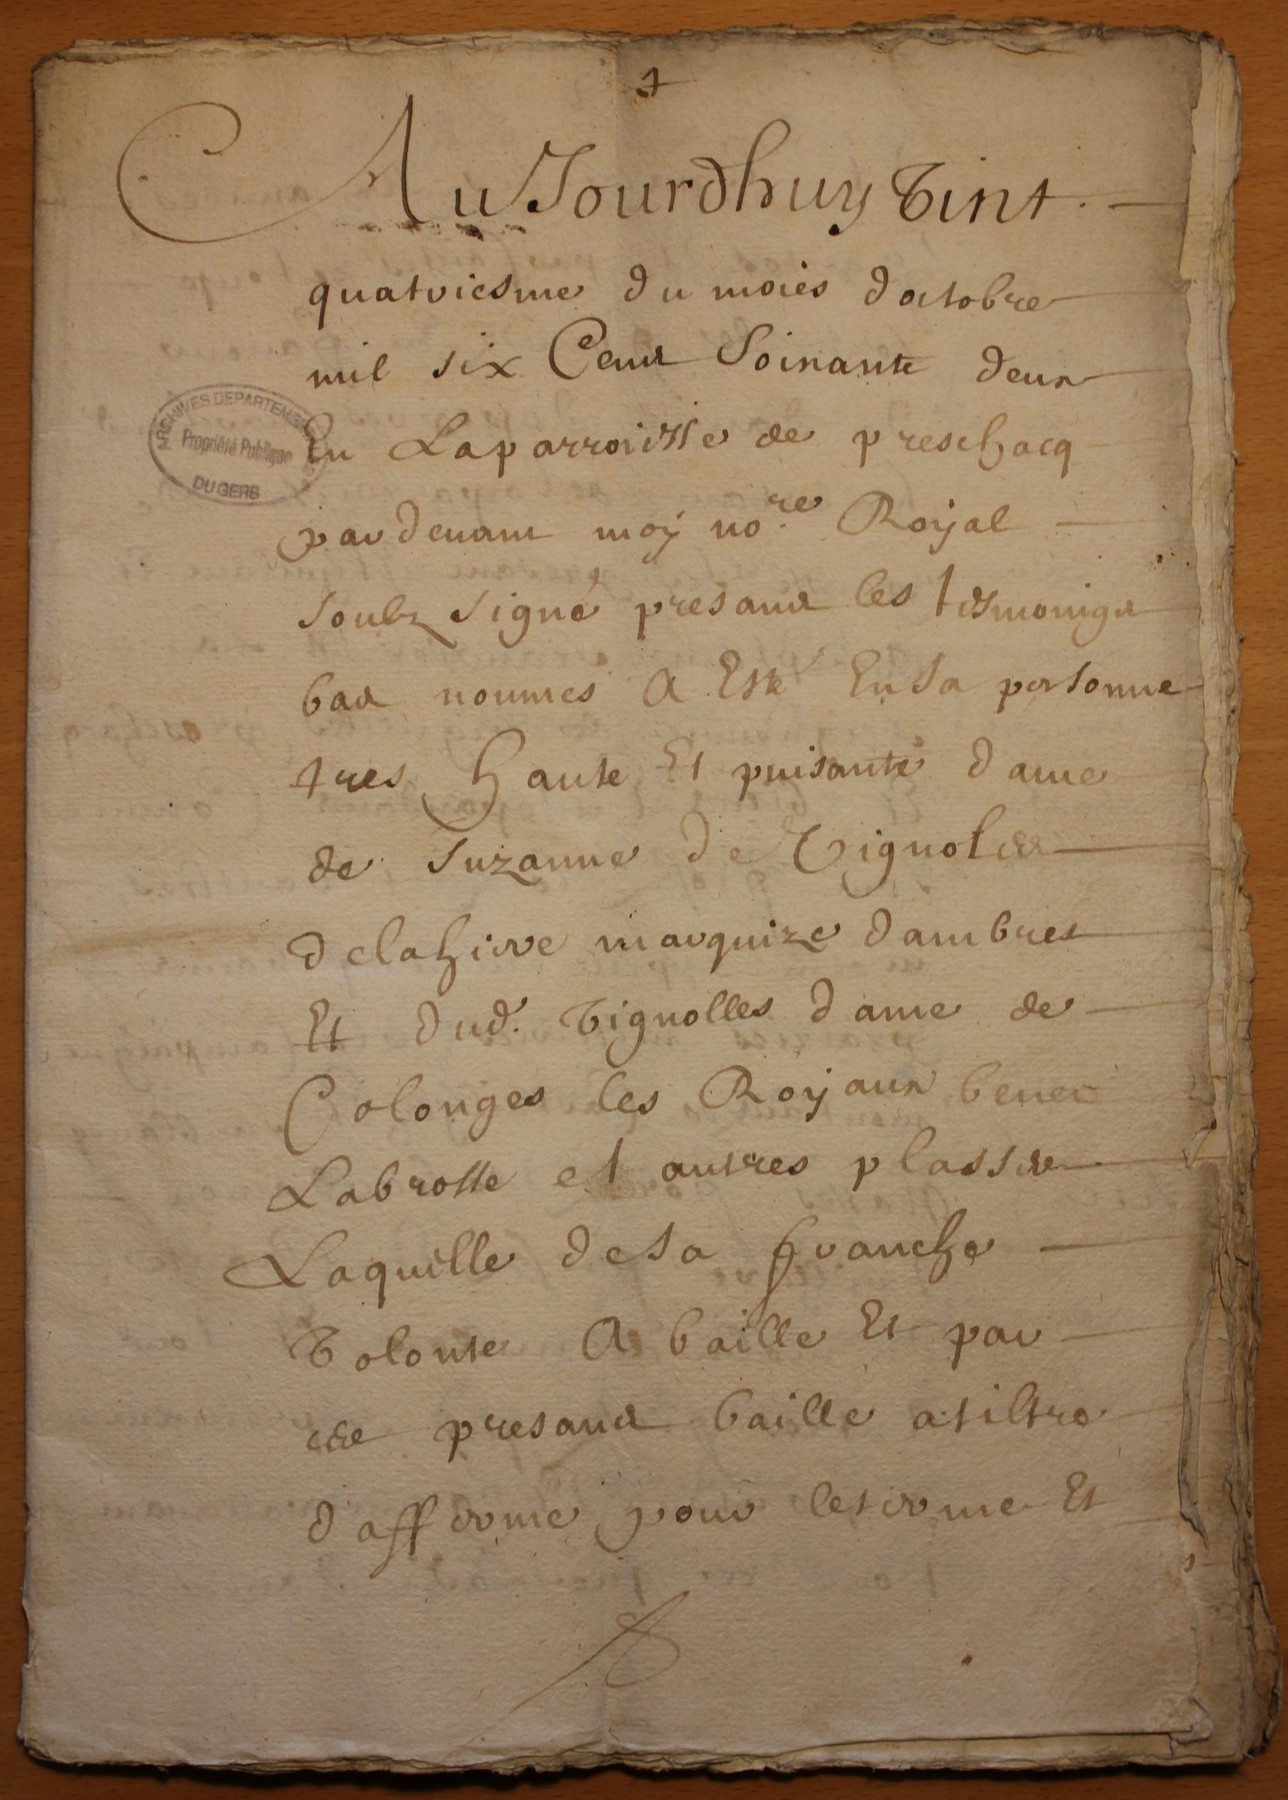 1
Au Jourdhuy vint
quatriesme du mois doctobre
mil six Cens Soixante deux
En Laparroisse de preschacq
pardevant moy no.re Royal
soubz signé presans les tesmoings
bas nommes A Esté En sa personne
tres haute Et puisante dame
de Suzanne de Vignoles
delahire marquize dambres
Et dud. Vignolles dame de
Colonges les Royaux benet
Labrosse et autres plasses
Laquelle de sa franche
Volonte A baille Et par
ces presans baille a tiltre
dafferme pour le terme Et
ARCHIVES DEPARTEMENTALES
Propriété Publique
DU GERS